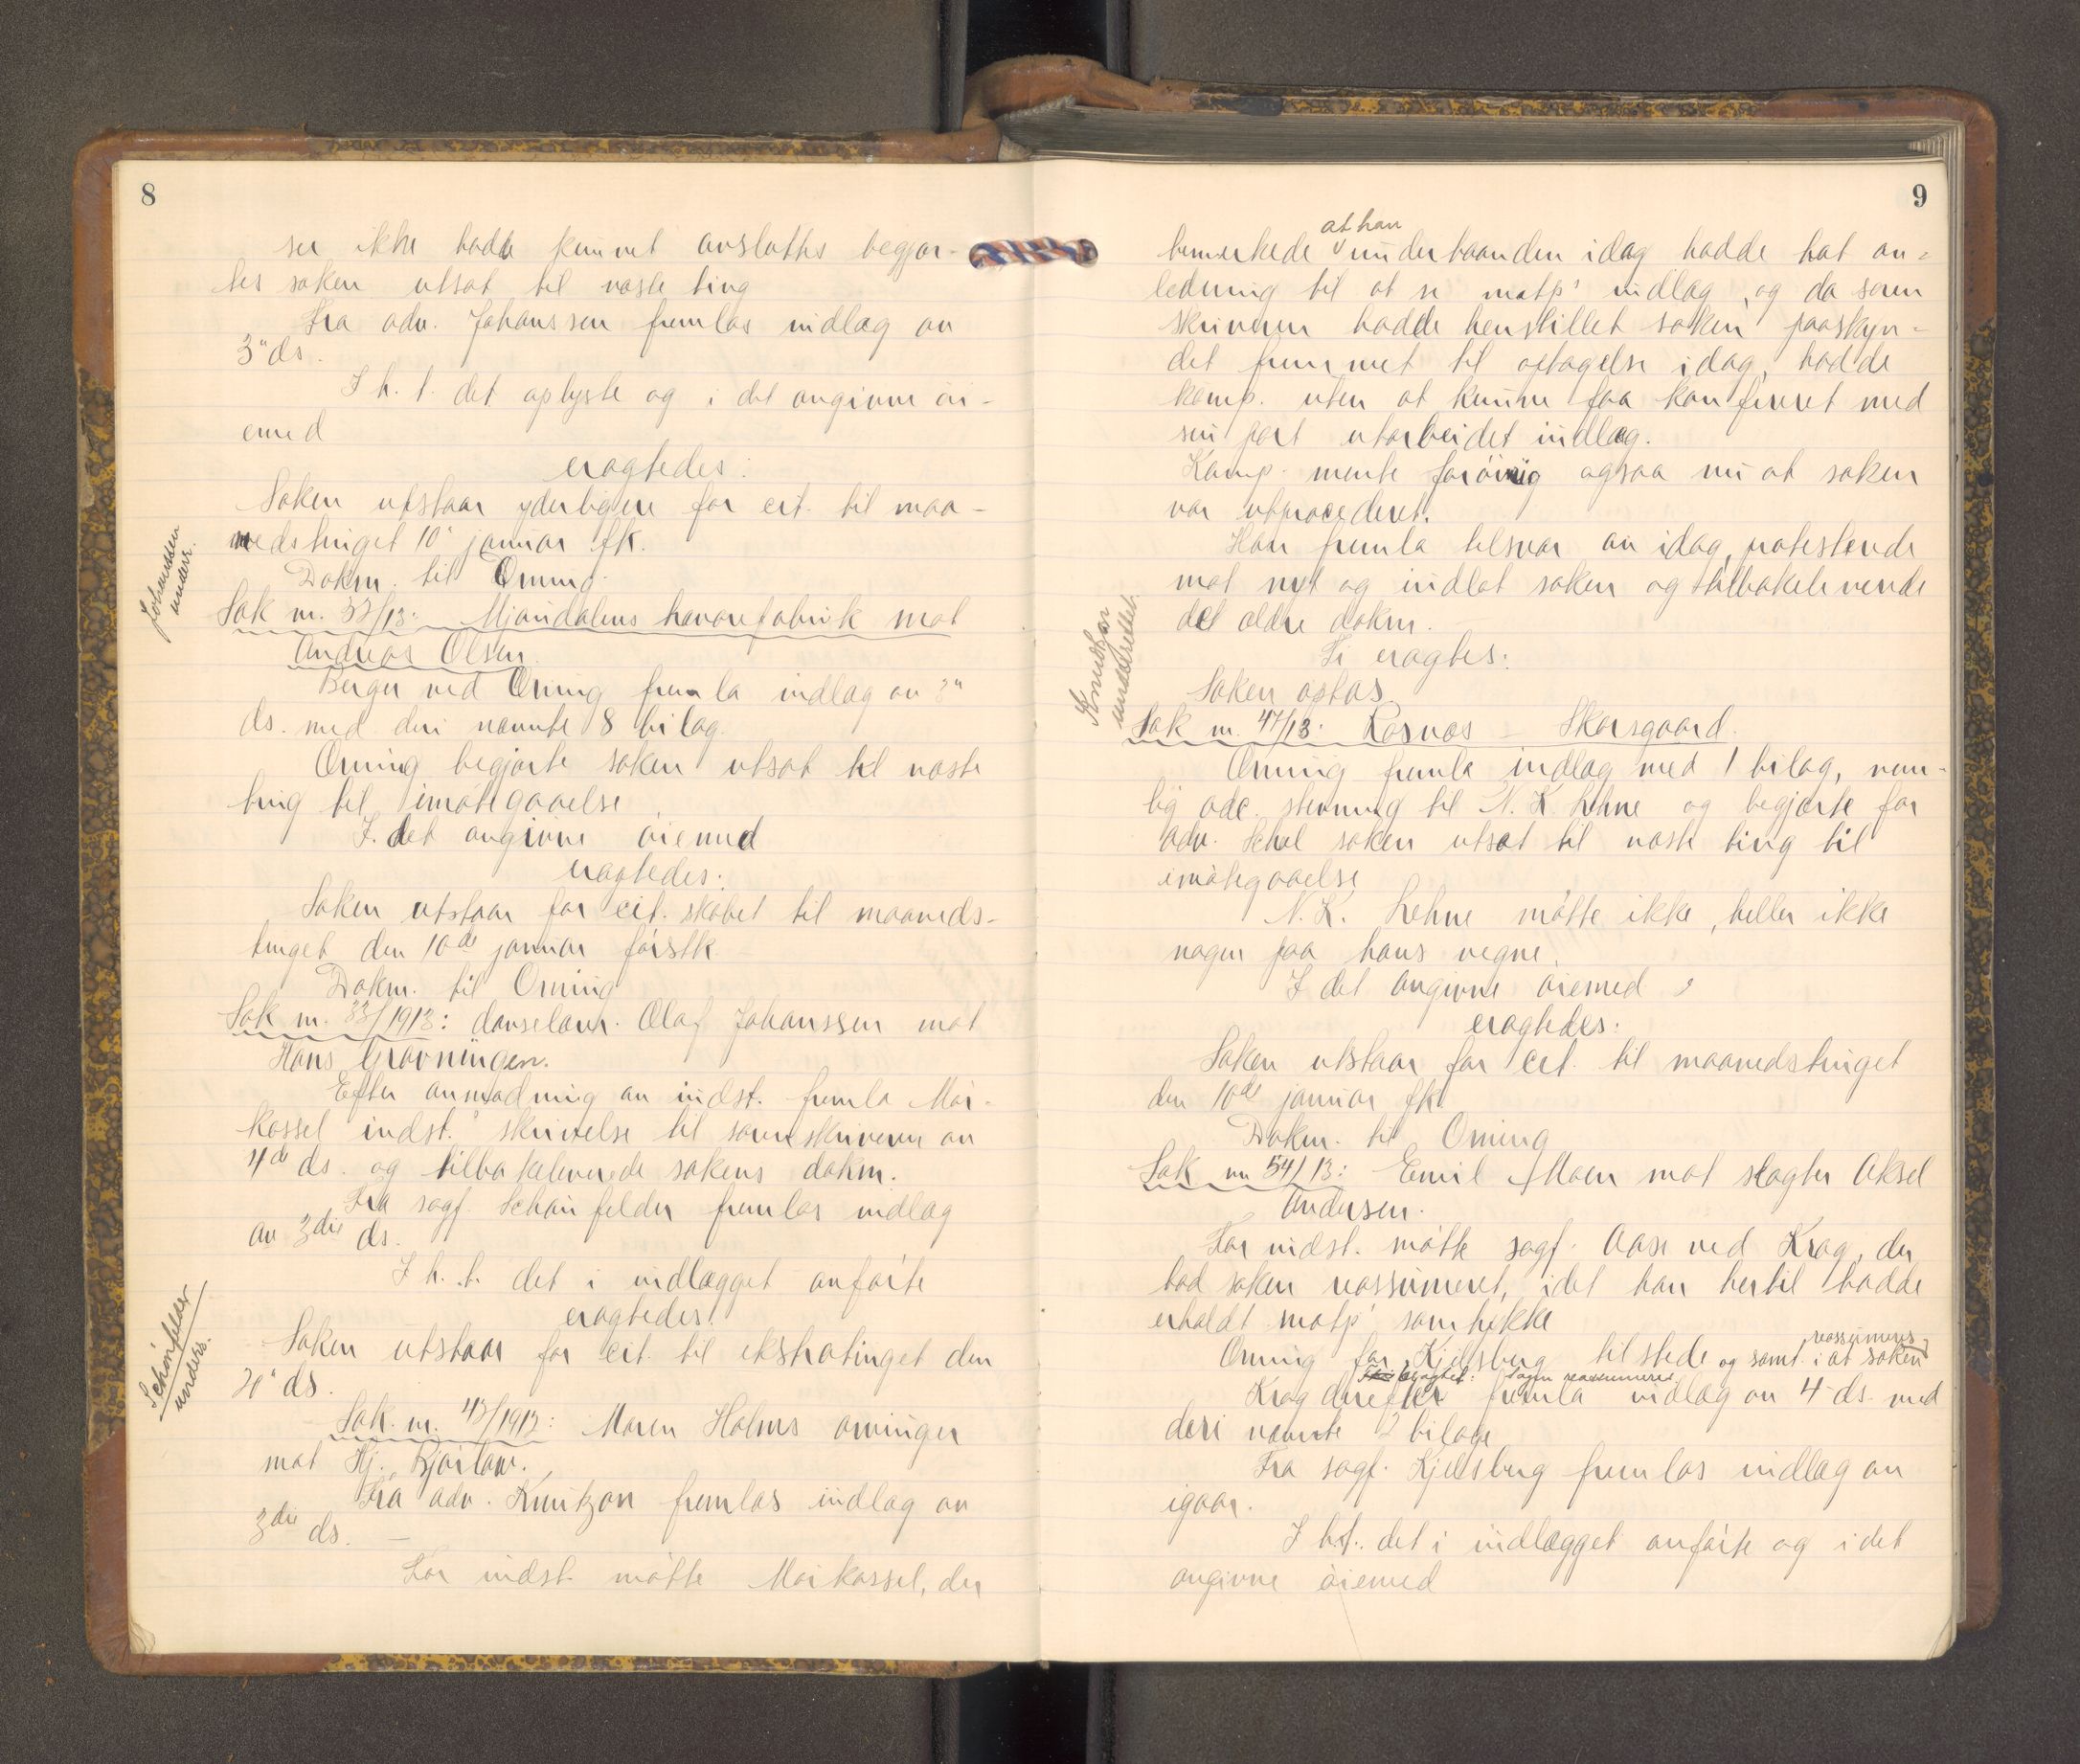 8
ser ikke hadde kunnet avsluttes begjær-
tes saken utsat til næste ting
Fra adv. Johanssen fremlas indlæg av
3" ds.
I h. t. det oplyste og i det angivne øi-
emed
eragtedes:
Saken utstaar yderligere for cit. til maa-
nedstinget 10' januar fk.
Dokm. til Orning.
Johanssen
underr.
Sak nr. 32/13: Mjøndalens havarefabrik mot
Andreas Olsen
Berger ved Orning fremla indlæg av 3"
ds. med deri nævnte 8 bilag.
Orning begjærte saken utsat til næste
ting til imøtegaaelse
I det angivne øiemed
eragtedes:
Saken utstaar for cit. skabet til maaneds-
tinget den 10de januar førstk.
Dokm. til Orning
Sak nr. 33/1913: danselærer Olaf Johanssen mot
Hans Gravningen.
Efter anmodning av indst. fremla Møi-
kossel indst.' skrivelse til sorenskriveren av
4de ds. og tilbakeleverede sakens dokm.
Fra sagf. Schønfelder fremlas indlæg
av 3die ds.
I h. t. det i indlægget anførte
eragtedes:
Saken utstaar for cit. til ekstratinget den
20' ds.
Schönfelder
underr.
Sak. nr. 43/1913: Maren Holms arvinger
mot Hj. Bjørlow.
Fra adv. Knutzon fremlas indlæg av
3die ds. —
For indst. møtte Møikossel, der
9
at han
bemerkede underhaanden idag hadde hat an-
ledning til at se motp' indlæg, og da soren
skriveren hadde henstillet saken paaskyn-
det fremmet til optagelse idag, hadde
komp. uten at kunne faa konfereret med
sin part utarbeidet indlæg.
Komp. mente forøvrig ogsaa nu at saken
var utprocederet.
Han fremla tilsvar av idag, protesterende
mot nyt og indlot saken og tilbakeleverende
det ældre dokm.
Ti eragtes:
Saken optas
Knudtzon
underrettet.
Sak nr. 47/13: Rosnæs – Skarsgaard.
Orning fremla indlæg med 1 bilag, nem-
lig adc. stevning til N. K. Lehne og begjærte for
adv. Scheel saken utsat til næste ting til
imøtegaaelse
N. K. Lehne møtte ikke, heller ikke
nogen paa hans vegne.
I det angivne øiemed
eragtedes:
Saken utstaar for cit. til maanedstinget
den 10de januar fk.
Dokm. til Orning
Sak nr. 54/13: Emil Moen mot slagter Aksel
Andersen.
For indst. møtte sagf. Aase ved Krag, der
bad saken reassumeret, idet han hertil hadde
erholdt motp' samtykke
Orning for Kjelsberg tilstede og samt. i at saken reassumeres
eragtet: Sagen reassumeres
Krag derefter fremla indlæg av 4 ds. med
deri nævnte 2 bilage
Fra sagf. Kjelsberg fremlas indlæg av
igaar.
I h.t. det i indlægget anførte og i det
angivne øiemed